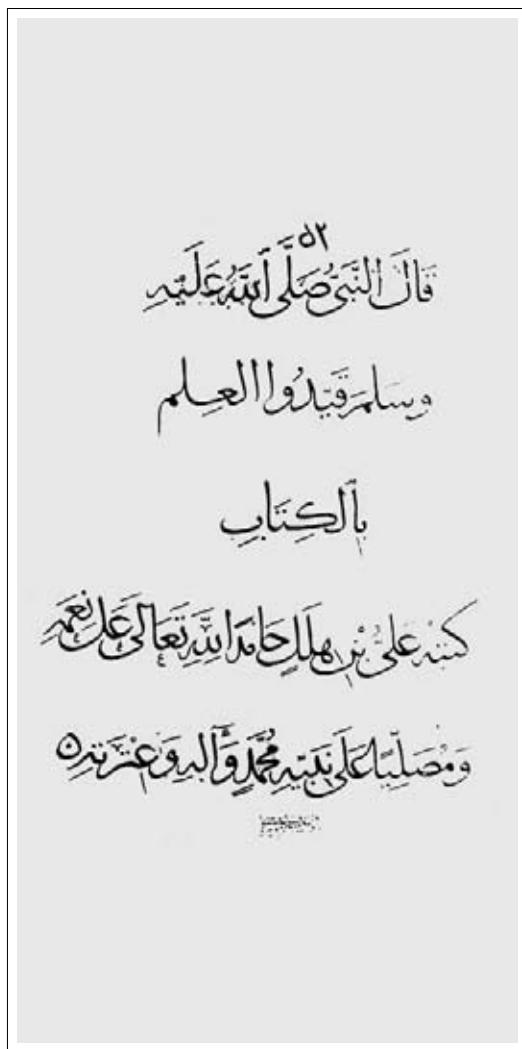 ٥٢
قَالَ النَّبِىُّ صَلَّى ٱللَّهُ عَلَيْهِ
وسلم قَيِّدُوا العِلم
بِالكِتَابِ
كتبه عَلىُّ بْن هِلَلٍ حَامِدًا لِلَّهِ تَعَالىٰ عَلى نِعَمِهِ
وَمُصَلِّيًا عَلَى نَبِيِّهِ مُحَمَّدٍ وَآلِهِ وَعِتْرَتِهِ ٥